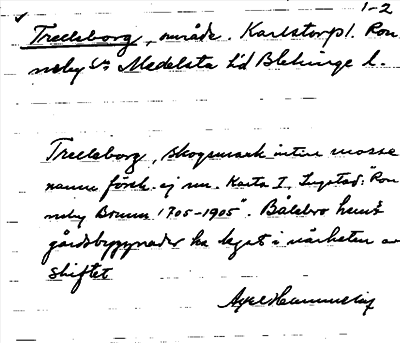 1-2
Trelleborg, område. Karlstorp 1. Ron
neby sn Medelsta hd Blekinge l.
Trelleborg, skogsmark intill mosse
namn försk. ej nu. Karta I, "Ron
neby Brunn 1705-1905". Bålebro hem
gårdsbyggnader ha legat i närheten av
skiftet